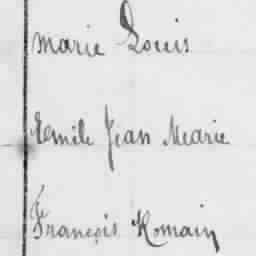 Marie Louis
Emile Jean Marie
François Romain